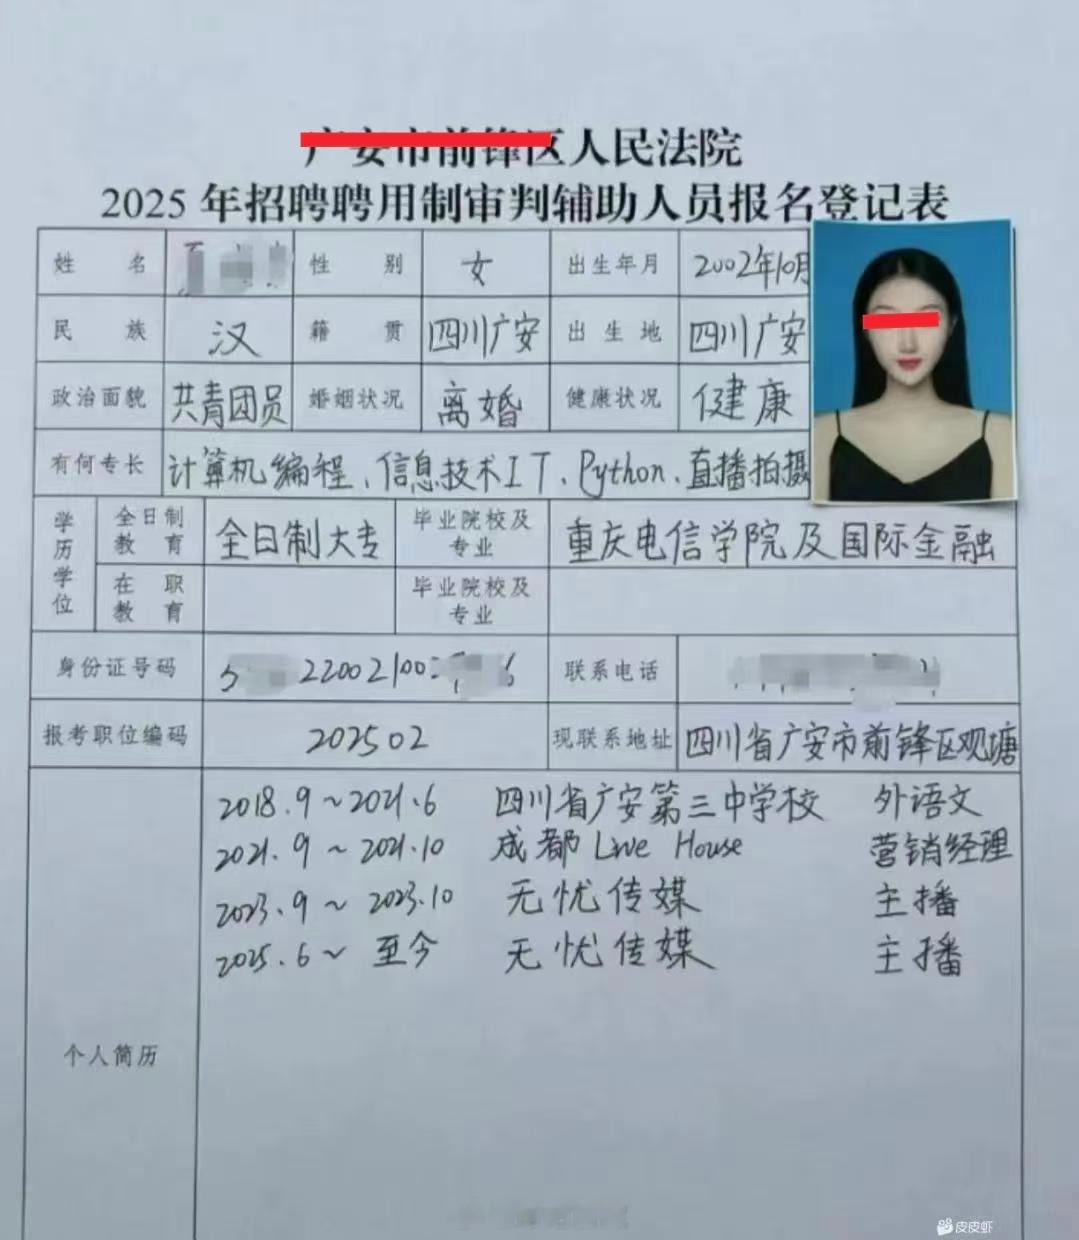 广安市前锋区人民法院
2025年招聘聘用制审判辅助人员报名登记表
姓 名 性 别 女 出生年月 2002年10月
民 族 汉 籍 贯 四川广安 出 生 地 四川广安
政治面貌 共青团员 婚姻状况 离婚 健康状况 健康
有何专长 计算机编程、信息技术IT、Python、直播拍摄
学历学位 全日制教育 全日制大专 毕业院校及专业 重庆电信学院及国际金融
在职教育 毕业院校及专业
身份证号码 联系电话
报考职位编码 202502 现联系地址 四川省广安市前锋区观塘
个人简历
2018.9~2021.6 四川省广安第三中学校 外语文
2021.9~2021.10 成都Live House 营销经理
2023.9~2023.10 无忧传媒 主播
2025.6~至今 无忧传媒 主播
皮皮虾